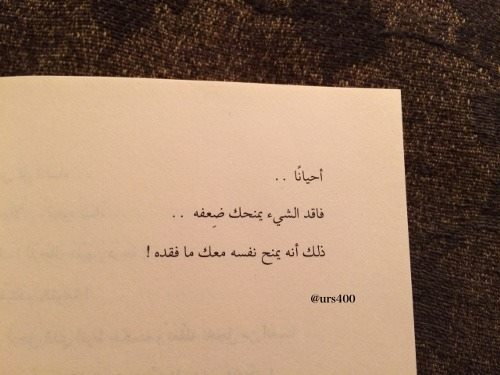 أحيانًا . .
فاقد الشيء يمنحك ضِعفه . .
ذلك أنه يمنح نفسه معك ما فقده !
@urs400